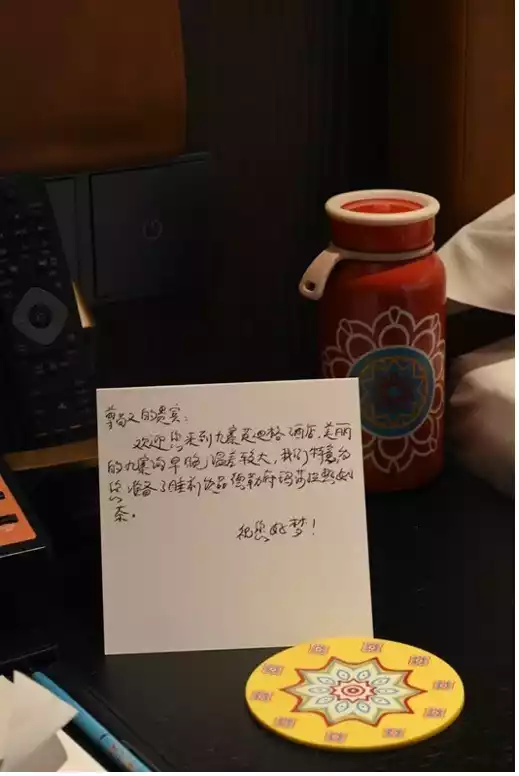 尊敬的贵宾：
欢迎您来到九寨英迪格酒店，美丽
的九寨沟早晚温差较大，我们特意为
您准备了睡前饮品德勒玛莎拉热奶
茶。
祝您好梦！